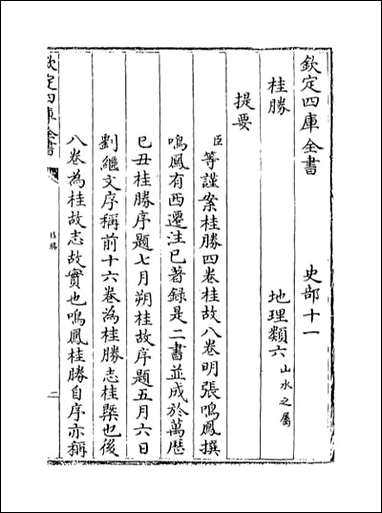 欽定四庫全書
史部十一
桂勝
地理類六山水之屬
提要
臣等謹案桂勝四卷桂故八卷明張鳴鳳撰
鳴鳳有西遷注已著録是二書並成於萬厯
己丑桂勝序題七月朔桂故序題五月六日
劉繼文序稱前十六卷為桂勝志桂槩也後
八卷為桂故志故實也鳴鳳桂勝自序亦稱
欽定四庫全書
桂勝